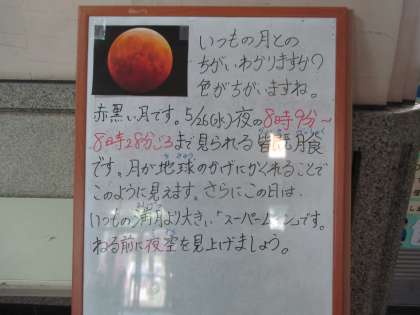 いつもの月との
ちがいわかりますか?
色がちがいますね。
赤黒い月です。5/26(水)夜の8時9分~
8時28分ごろまで見られる皆既月食
です。月が地球のかげにかくれることで
このように見えます。さらにこの日は、
いつもの満月より大きい「スーパームーン」です。
ねる前に夜空を見上げましょう。